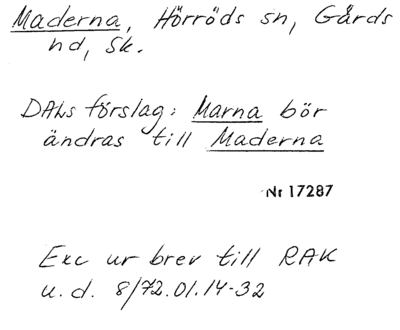 Maderna, Hörröds sn, Gärds
hd, Sk.
DALs förslag: Marna bör
ändras till Maderna
Nr 17287
Exc ur brev till RAK
u.d. 8/72.01.14-32